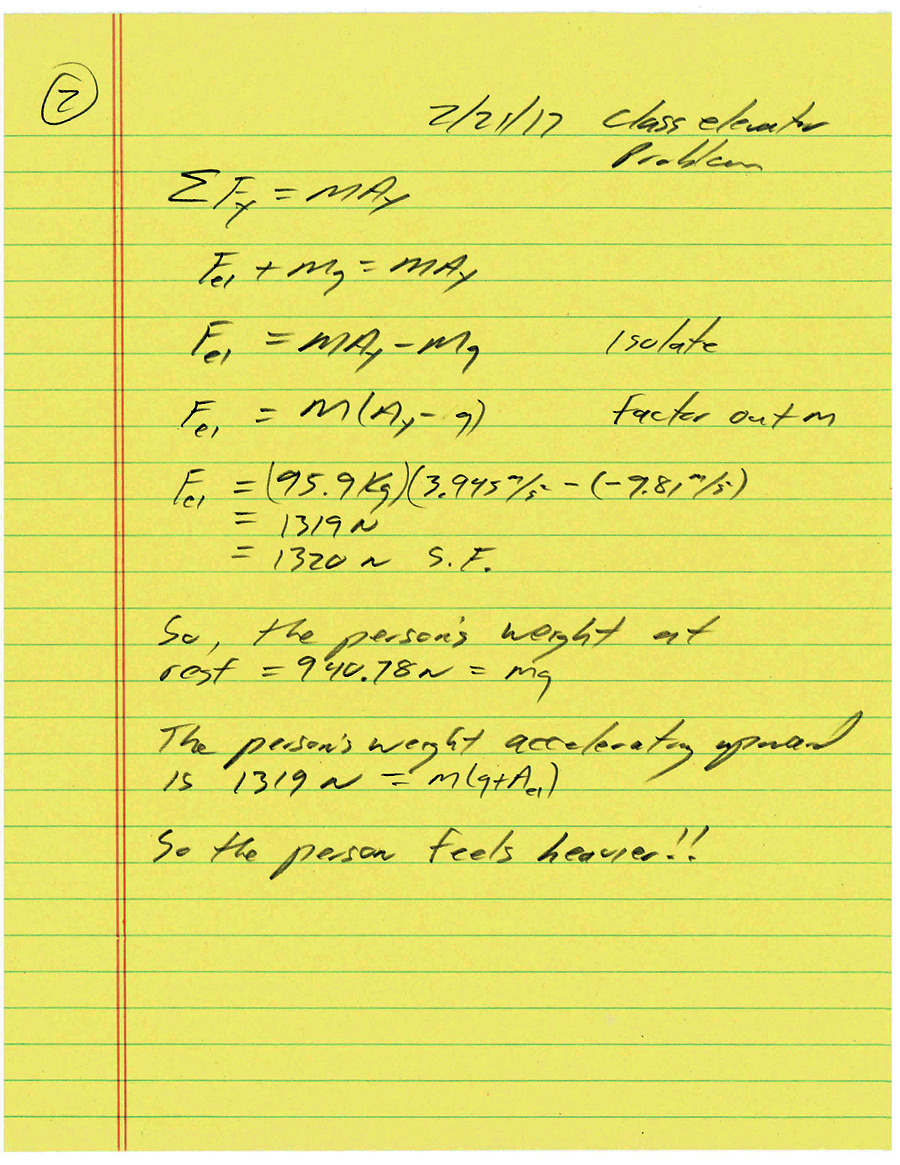 2
2/21/17 Class elevator
Problem
ΣFy = mAy
Fel + mg = mAy
Fel = mAy - mg Isolate
Fel = m(Ay - g) Factor out m
Fel = (95.9 Kg)(3.945 m/s² - (-9.81 m/s²)
= 1319 N
= 1320 N S.F.
So, the person's weight at
rest = 940.78 N = mg
The person's weight accelerating upward
is 1319 N = m(g+Ael)
So the person feels heavier!!